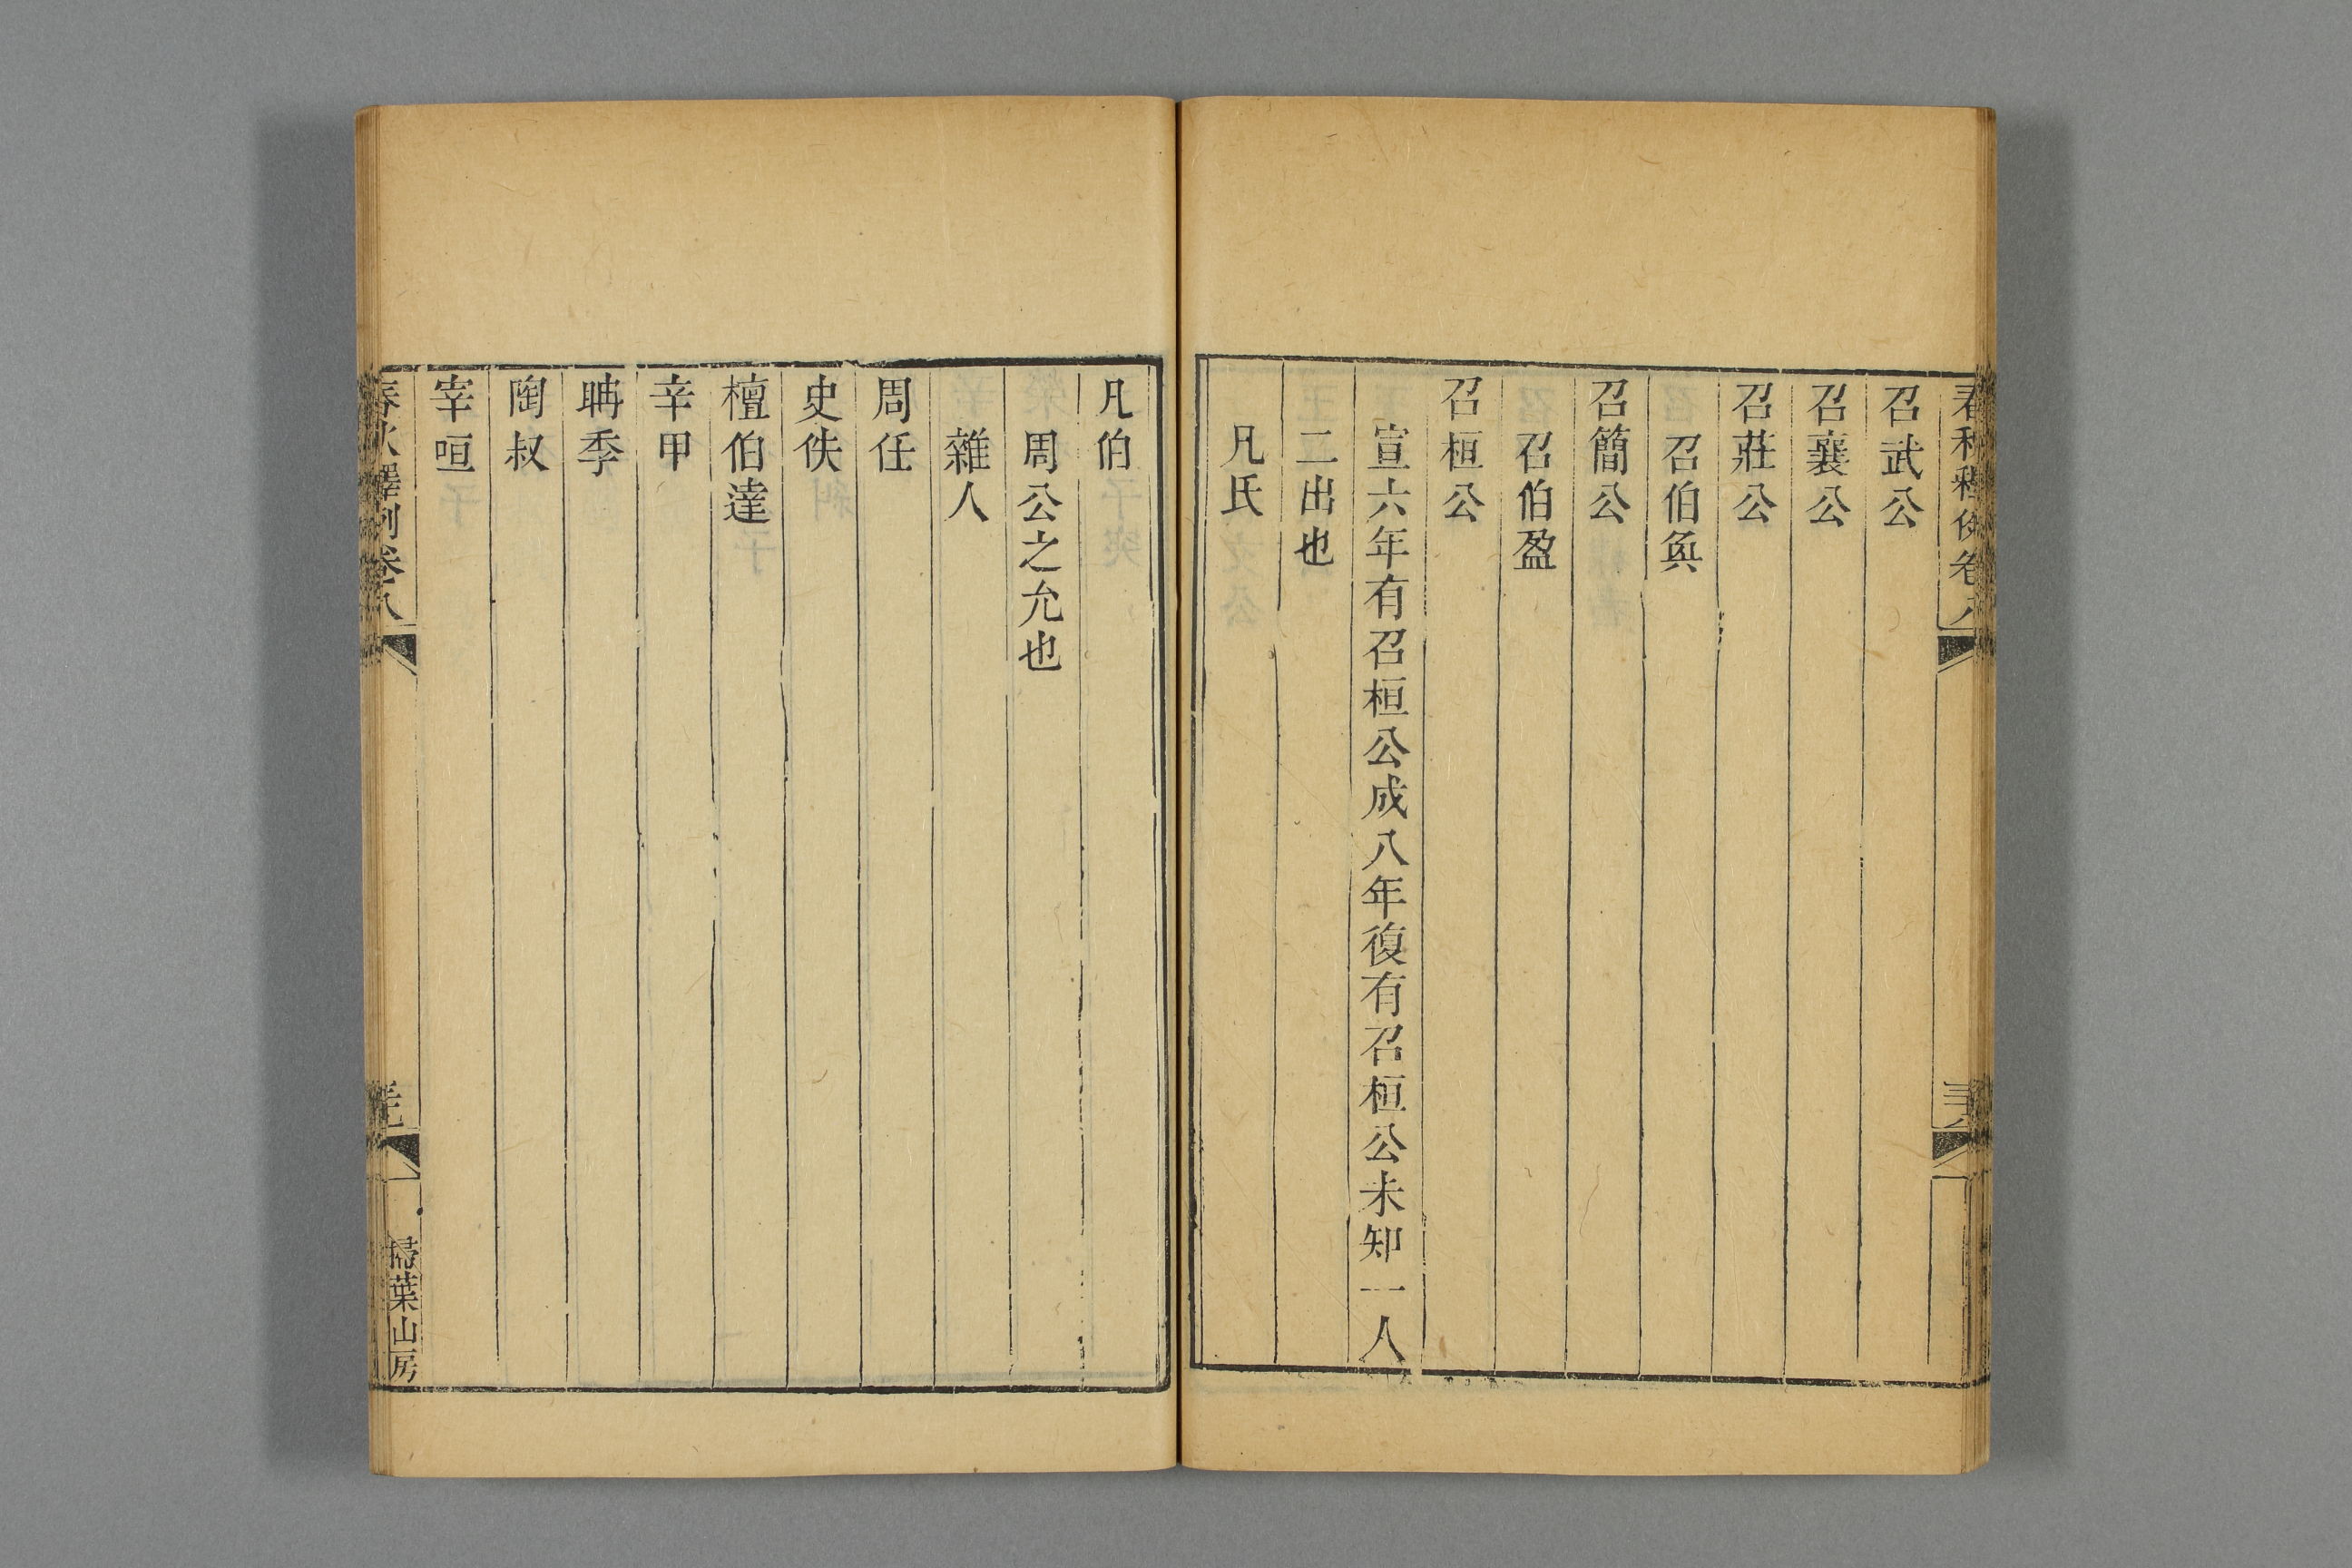 召武公
召襄公
召莊公
召伯奐
召簡公
召伯盈
召桓公
宣六年有召桓公成八年復有召桓公未知一人
二出也
凡氏
凡伯
周公之允也
雜人
周任
史佚
檀伯達
辛甲
聃季
陶叔
宰咺
春秋釋例卷八
掃葉山房